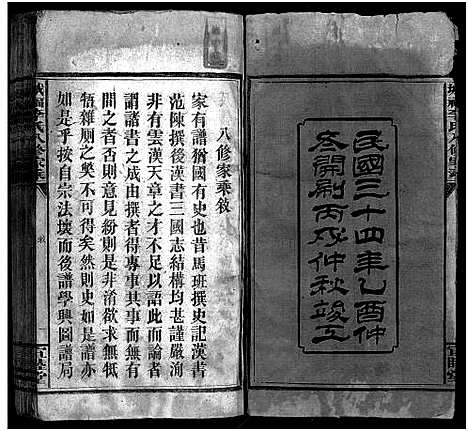 民國三十四年乙酉仲
冬開刷丙戌仲秋竣工
八修家乘敘
家有譜猶國有史也昔馬班撰史記漢書
范陳撰後漢書三國志結構均甚謹嚴洵
非有雲漢天章之才不足以語此而論者
謂諸書之成由撰者得專事其事而無有
間之者否則意見紛則是非淆欲求無牴
牾雜厠之獘不可得矣然則史如是譜亦
如是乎按自宗法壞而後譜學興圖譜局